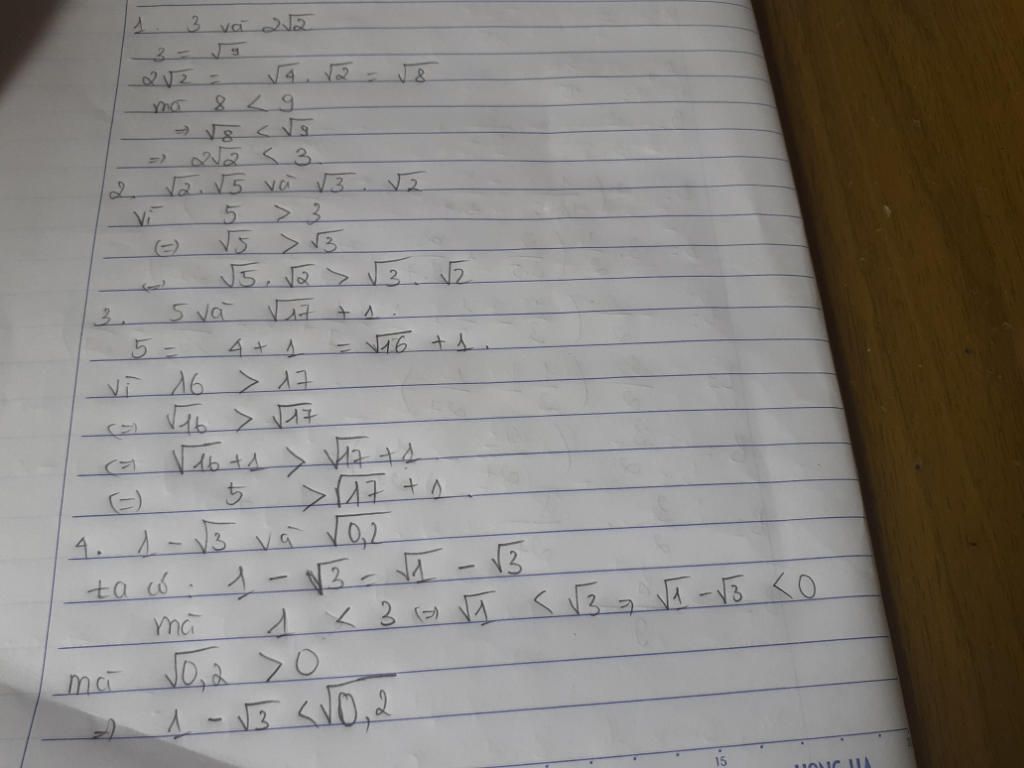 1. 3 và 2√2
3 = √9
2√2 = √4 . √2 = √8
mà 8 < 9
⇒ √8 < √9
⇒ 2√2 < 3
2. √2 . √5 và √3 . √2
vì 5 > 3
⇔ √5 > √3
⇔ √5 . √2 > √3 . √2
3. 5 và √17 + 1.
5 = 4 + 1 = √16 + 1.
vì 16 > 17
⇔ √16 > √17
⇔ √16 + 1 > √17 + 1
⇔ 5 > √17 + 1.
4. 1 - √3 và √0,2
ta có : 1 - √3 = √1 - √3
mà 1 < 3 ⇔ √1 < √3 ⇒ √1 - √3 < 0
mà √0,2 > 0
⇒ 1 - √3 < √0,2
15